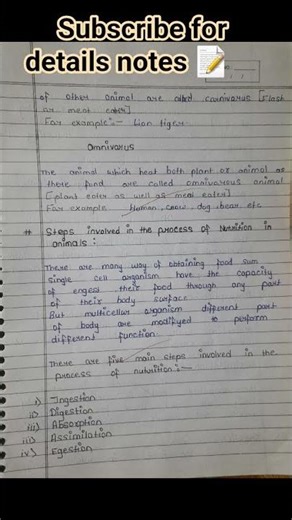 Subscribe for
details notes 📝
of other animal are called carnivorus [Flash
or meat eater]
For example :- Lion tiger
Omnivorus
The animal which heat both plant or animal as
there fund are called omnivorous animal
[plant eater as well as meal eater]
For example Human, crow, dog, bear, etc
# Steps involved in the process of Nutrition in
animals :
There are many way of obtaining food sum
single cell organism have the capacity
of engest their food through any part
of their body surface.
But multicellar organism different part
of body are modifyed to perform
different function.
There are five main steps involved in the
process of nutrition :-
i) Ingestion
ii) Digestion
iii) Absorption
iii) Assimilation
iv) Egestion